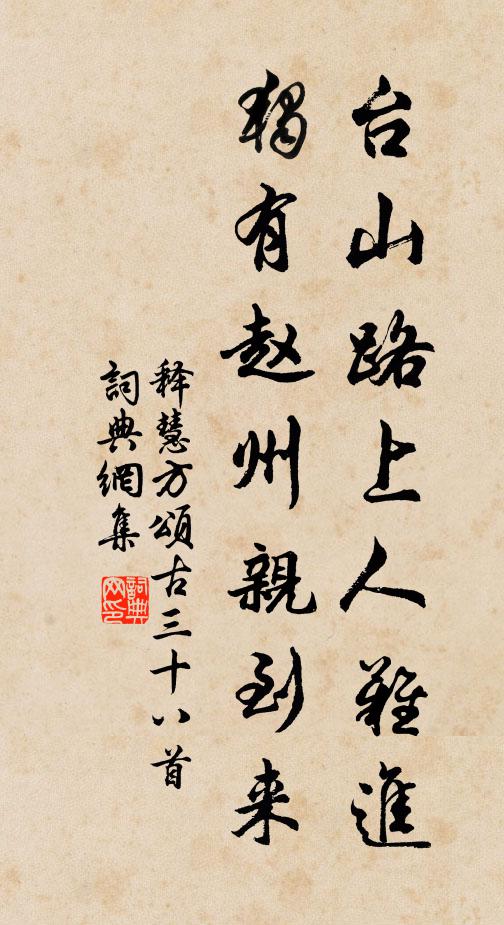 台山路上人難進
獨有赵州親到来
释慧方頌古三十八首
詞典網集
詞典網印